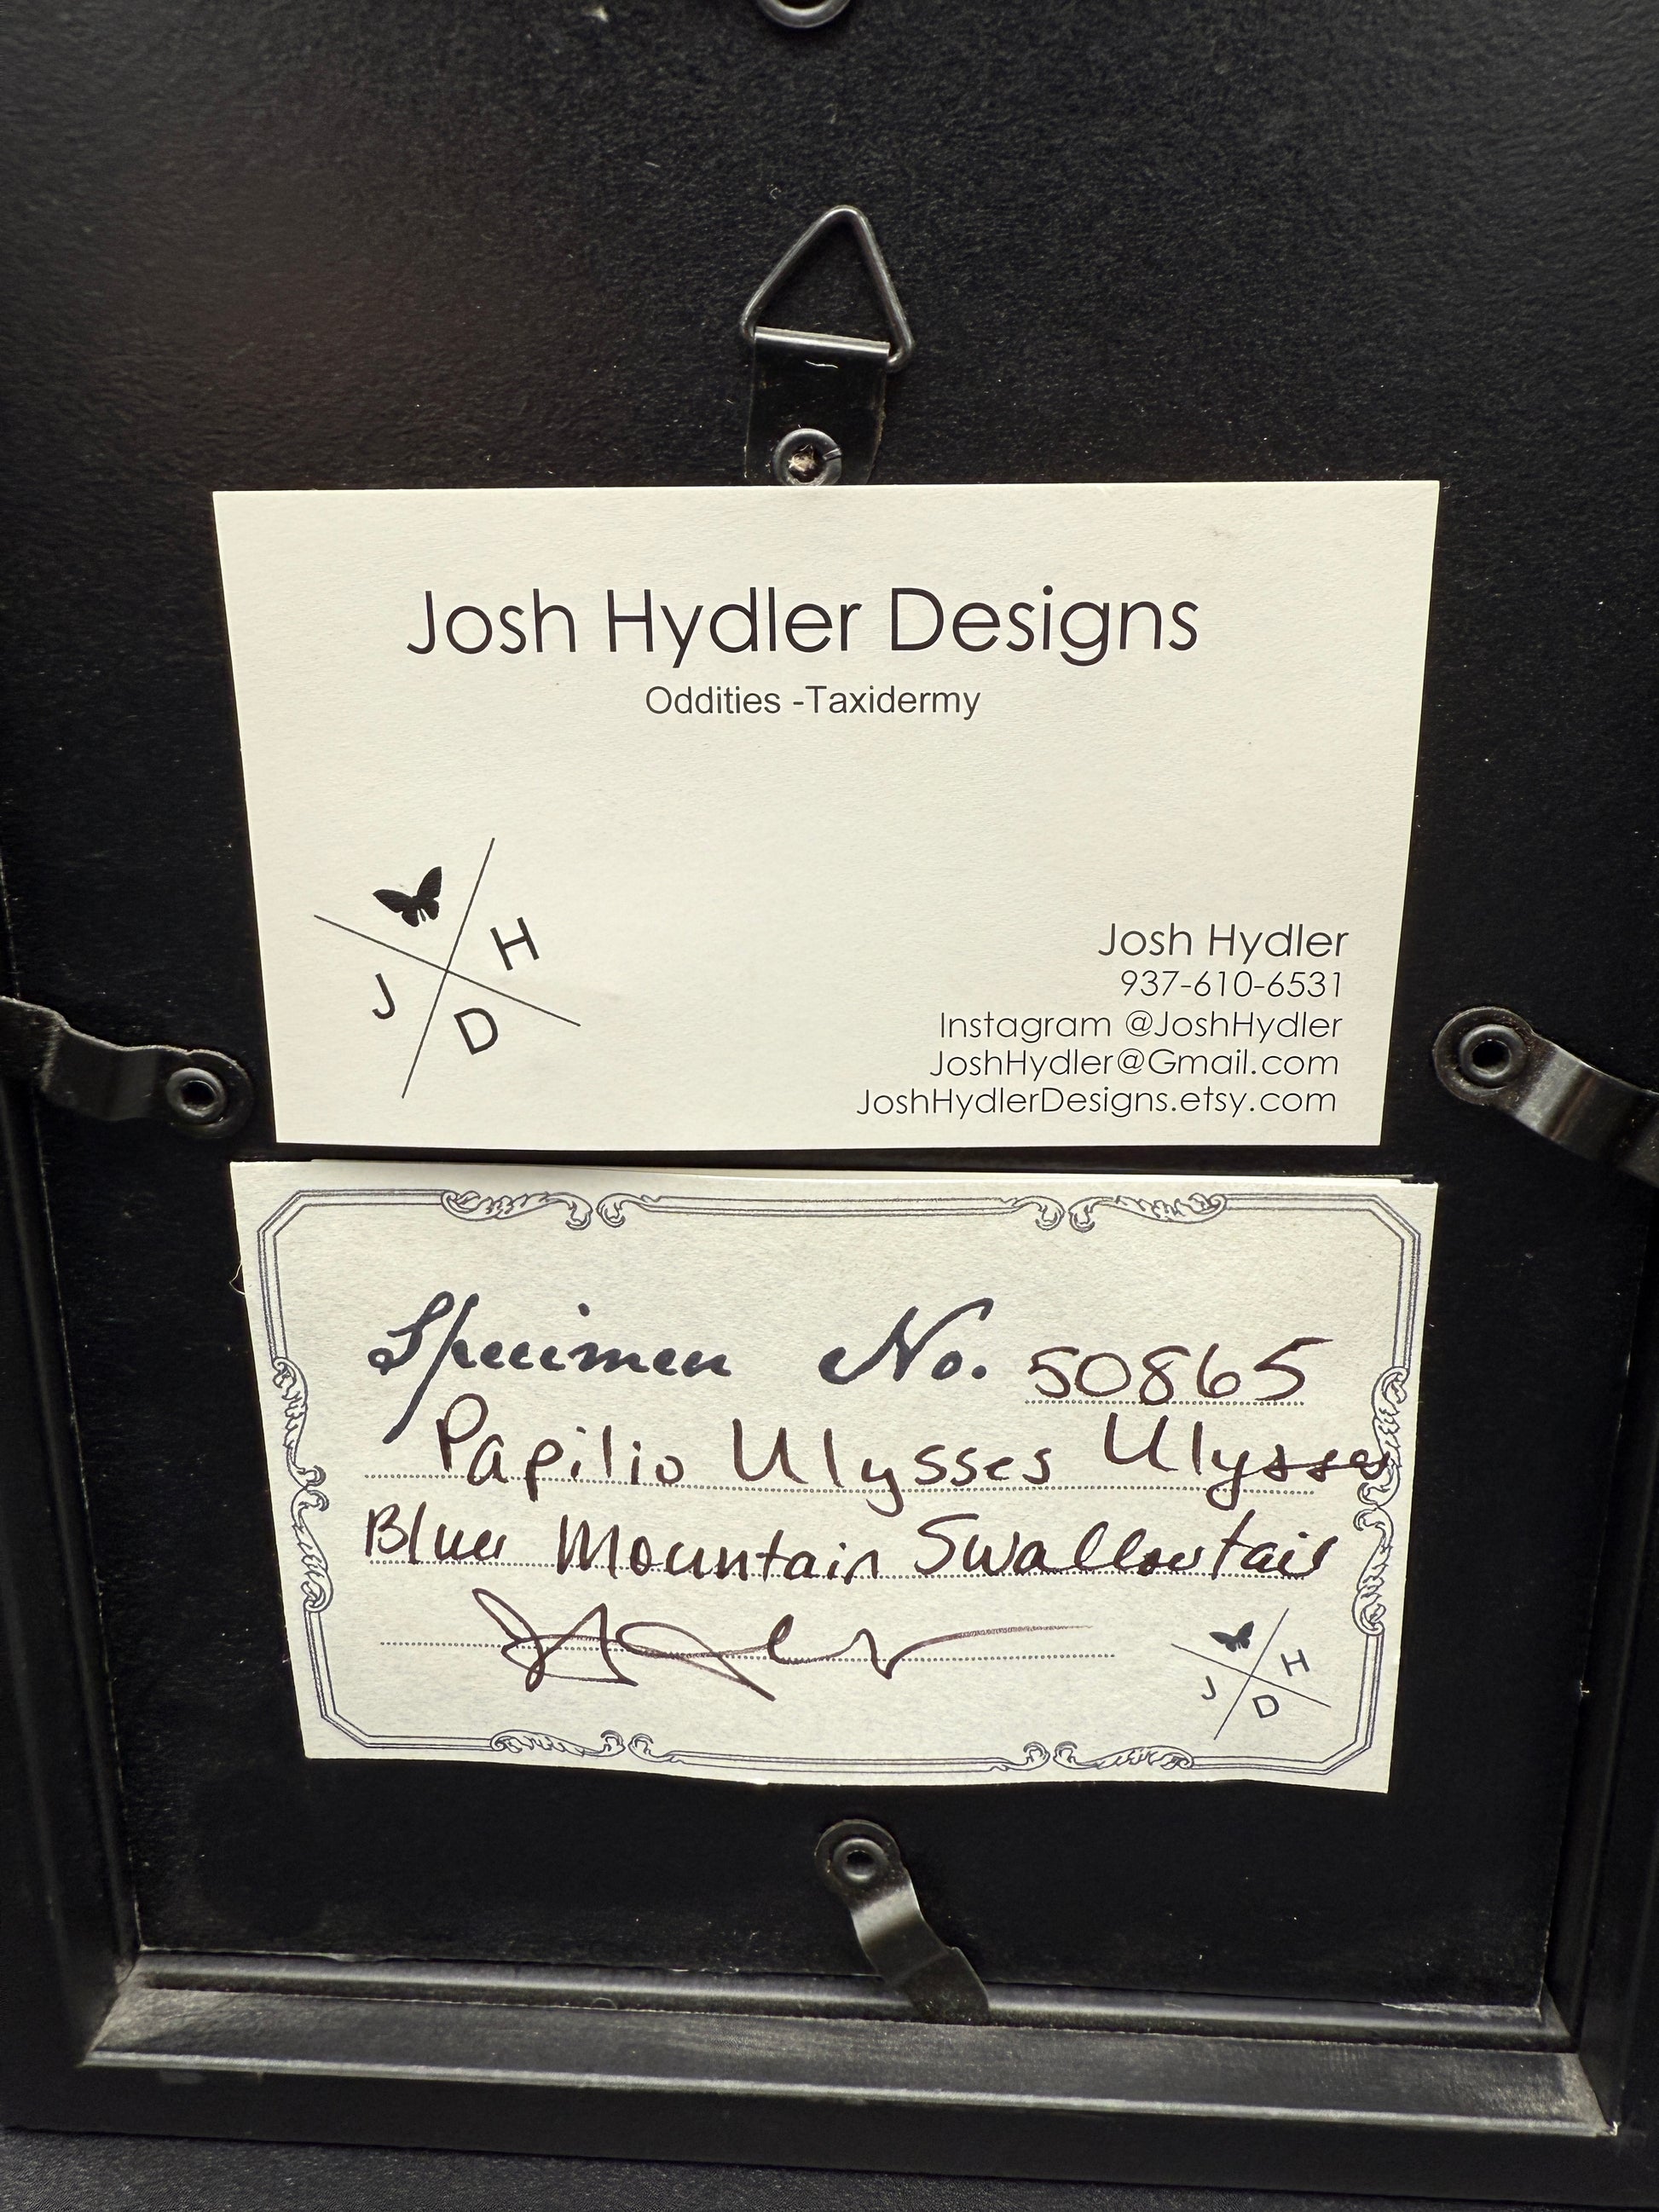 Josh Hydler Designs
Oddities -Taxidermy
J H D
Josh Hydler
937-610-6531
Instagram @JoshHydler
JoshHydler@Gmail.com
JoshHydlerDesigns.etsy.com
Specimen No. 50865
Papilio Ulysses Ulysses
Blue Mountain Swallowtail
J H D